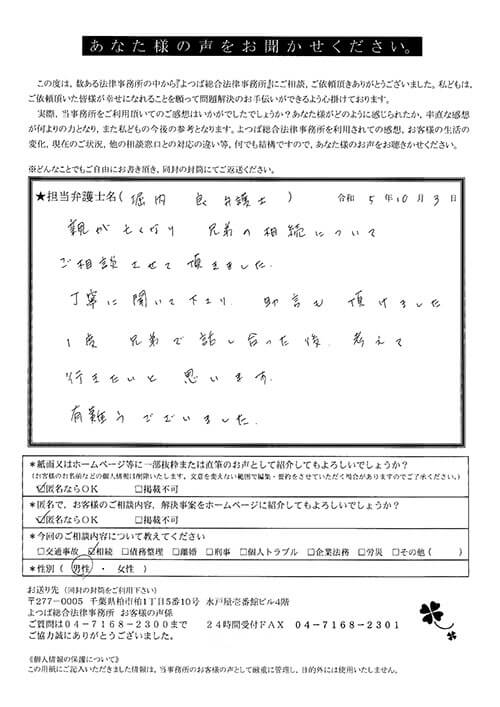 あなた様の声をお聞かせください。
この度は、数ある法律事務所の中から『よつば総合法律事務所』にご相談，ご依頼頂きありがとうございました。私どもは、
ご依頼頂いた皆様が幸せになれることを願って問題解決のお手伝いができるよう心掛けております。
実際、当事務所をご利用頂いてのご感想はいかがでしたでしょうか？あなた様がどのように感じられたか、率直な感想
が何よりの力となり、また私どもの今後の参考となります。よつば総合法律事務所を利用されての感想、お客様の生活の
変化、現在のご状況、他の相談窓口との対応の違い等、何でも結構ですので、あなた様の声をお聴きかせください。
※どんなことでもご自由にお書き頂き、同封の封筒にてご返送ください。
★担当弁護士名（ 堀内 良 弁護士 ） 令和 5 年 10 月 3 日
親が亡くなり 兄弟の相続について
ご相談させて頂きました。
丁寧に聞いて下さり、助言も頂けました
1度 兄弟で話し合った後、考えて
行きたいと思います。
有難うございました。
＊紙面又はホームページ等に一部抜粋または直筆のお声として紹介してもよろしいでしょうか？
（お客様のお名前などの個人情報は削除いたします。文意を変えない範囲で編集・要約をさせていただく場合がありますのでご了承ください。）
☑匿名ならOK □掲載不可
＊匿名で、お客様のご相談内容、解決事案をホームページに紹介してもよろしいでしょうか？
☑匿名ならOK □掲載不可
＊今回のご相談内容について教えてください
□交通事故 ☑相続 □債務整理 □離婚 □刑事 □個人トラブル □企業法務 □労災 □その他（ ）
＊性別（ 男性 ・ 女性 ）
お送り先（同封の封筒をご利用下さい）
〒277-0005 千葉県柏市柏1丁目5番10号 水戸屋壱番館ビル4階
よつば総合法律事務所 お客様の声係
ご質問は04-7168-2300まで 24時間受付FAX 04-7168-2301
ご協力誠にありがとうございました。
《個人情報の保護について》
この用紙にご記入いただきました情報は、当事務所のお客様の声として厳重に管理し、目的外には使用いたしません。